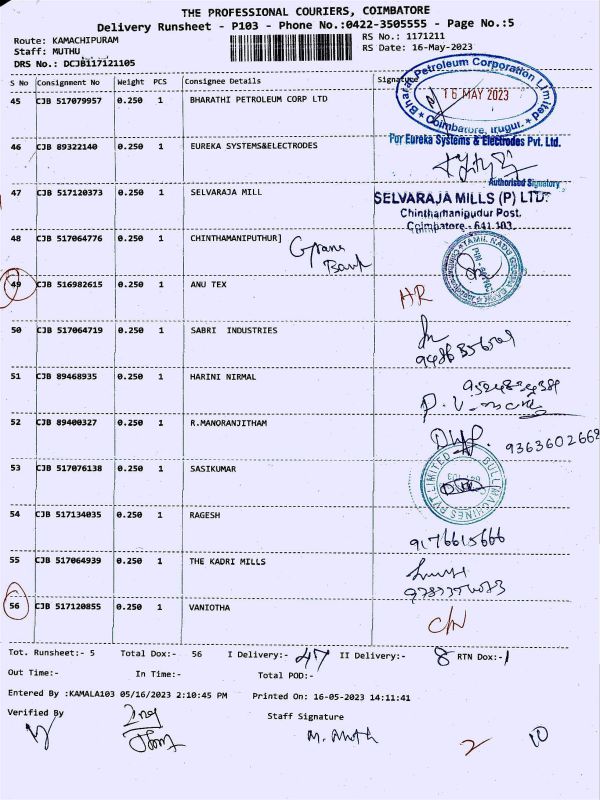 THE PROFESSIONAL COURIERS, COIMBATORE
Delivery Runsheet - P103 - Phone No.:0422-3505555 - Page No.:5
Route: KAMACHIPURAM
RS No.: 1171211
Staff: MUTHU
RS Date: 16-May-2023
DRS No.: DCJB117121105
S No Consignment No Weight PCS Consignee Details Signature
45 CJB 517079957 0.250 1 BHARATHI PETROLEUM CORP LTD
Bharat Petroleum Corporation Limited
16 MAY 2023
Coimbatore, Irugur.
46 CJB 89322140 0.250 1 EUREKA SYSTEMS&ELECTRODES
For Eureka Systems & Electrodes Pvt. Ltd.
Authorised Signatory
47 CJB 517120373 0.250 1 SELVARAJA MILL
SELVARAJA MILLS (P) LTD.
Chinthamanipudur Post.
Coimbatore - 641 103.
48 CJB 517064776 0.250 1 CHINTHAMANIPUTHUR]
Grama
Bank
TAMIL NADU GRAMA BANK
49 CJB 516982615 0.250 1 ANU TEX
HR
50 CJB 517064719 0.250 1 SABRI INDUSTRIES
51 CJB 89468935 0.250 1 HARINI NIRMAL
52 CJB 89400327 0.250 1 R.MANORANJITHAM
9363602668
53 CJB 517076138 0.250 1 SASIKUMAR
BULL MACHINES PVT LIMITED
54 CJB 517134035 0.250 1 RAGESH
9176615666
55 CJB 517064939 0.250 1 THE KADRI MILLS
56 CJB 517120855 0.250 1 VANIOTHA
C/N
Tot. Runsheet:- 5 Total Dox:- 56 I Delivery:- 47 II Delivery:- 8 RTN Dox:-1
Out Time:- In Time:- Total POD:-
Entered By :KAMALA103 05/16/2023 2:10:45 PM Printed On: 16-05-2023 14:11:41
Verified By
Staff Signature
M. Muth
2 10